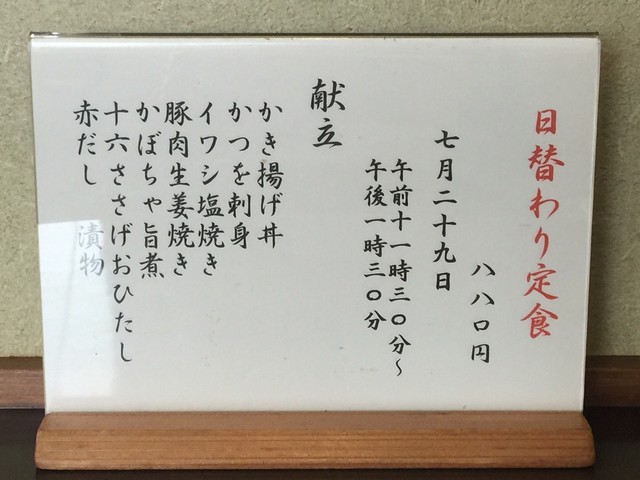 日替わり定食
八八〇円
七月二十九日
午前十一時三〇分～
午後一時三〇分
献立
かき揚げ丼
かつを刺身
イワシ塩焼き
豚肉生姜焼き
かぼちゃ旨煮
十六ささげおひたし
赤だし 漬物